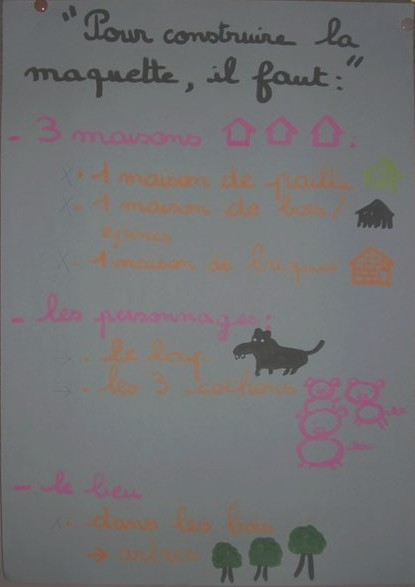 "Pour construire la
maquette, il faut:"
- 3 maisons :
x. 1 maison de paille
x. 1 maison de bois/
x. 1 maison de briques
- les personnages:
. le loup
. les 3 cochons
- le lieu
x. dans les bois
→ arbres